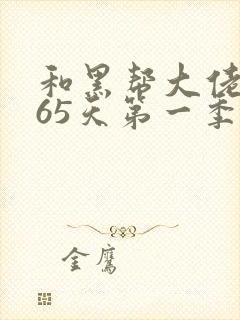 和黑帮大佬
65天第一季
金鹰